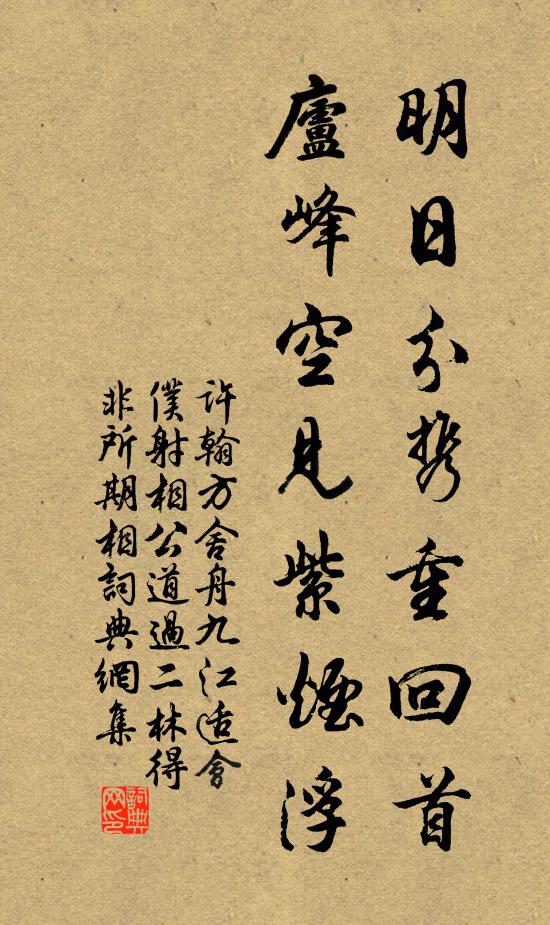 明日分携重回首
廬峰空見紫煙浮
許翰方舍舟九江适會
僕射相公道過二林得
非所期相詞典網集
詞典网印